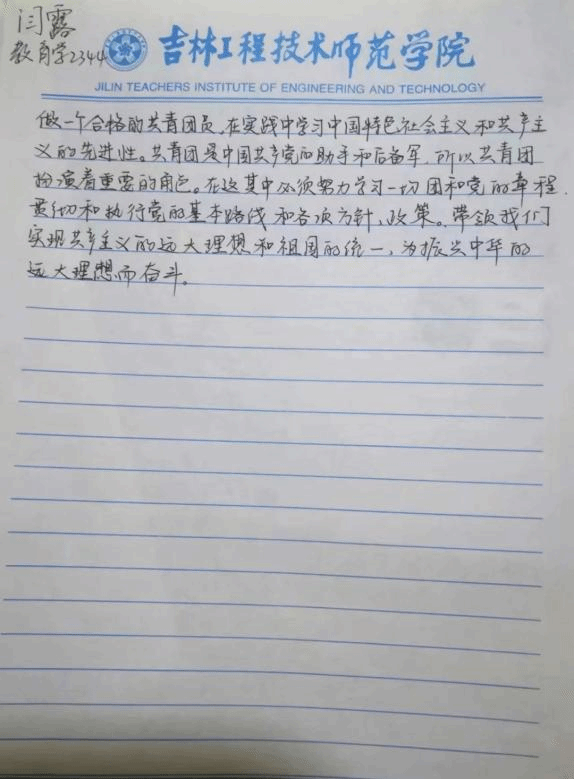 闫露
教育学2344
吉林工程技术师范学院
JILIN TEACHERS INSTITUTE OF ENGINEERING AND TECHNOLOGY
做一个合格的共青团员,在实践中学习中国特色社会主义和共产主
义的先进性。共青团是中国共产党的助手和后备军,所以共青团
扮演着重要的角色。在这其中必须努力学习一切团和党的章程,
贯彻和执行党的基本路线和各项方针,政策。带领我们
实现共产主义的远大理想和祖国的统一,为振兴中华的
远大理想而奋斗。